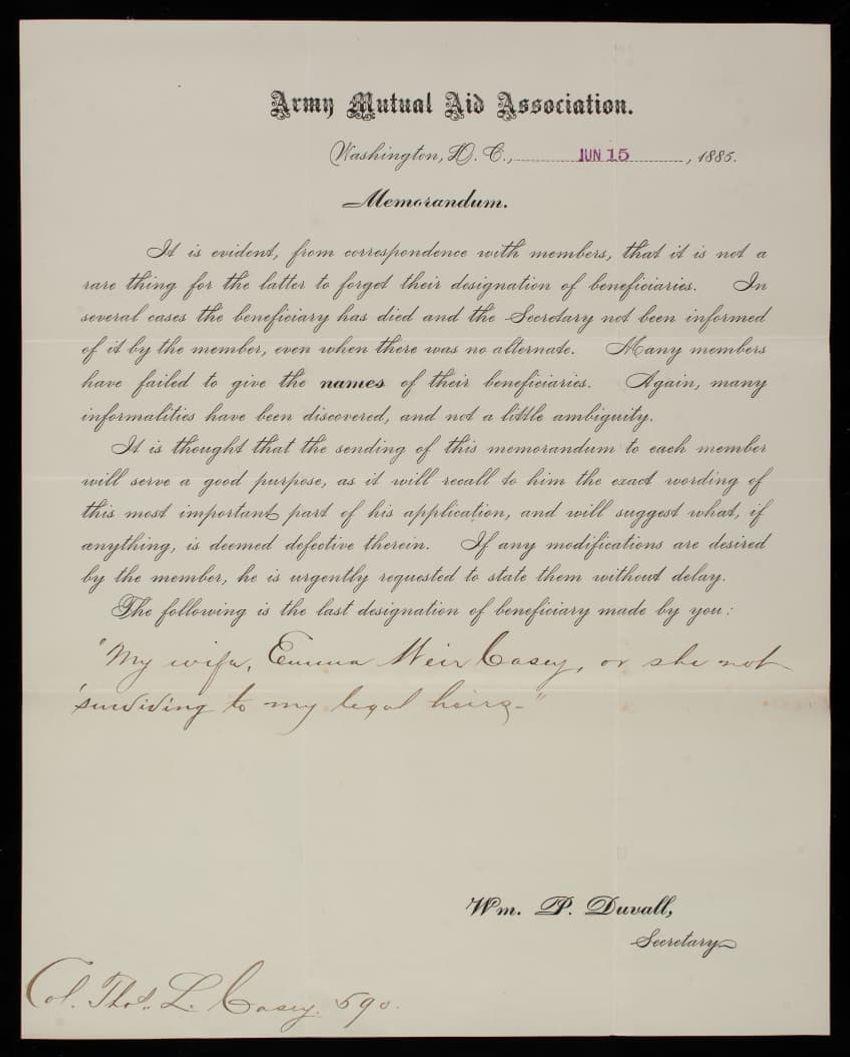 Army Mutual Aid Association.
Washington, D. C., JUN 15, 1885.
Memorandum.
It is evident, from correspondence with members, that it is not a
rare thing for the latter to forget their designation of beneficiaries. In
several cases the beneficiary has died and the Secretary not been informed
of it by the member, even when there was no alternate. Many members
have failed to give the names of their beneficiaries. Again, many
informalities have been discovered, and not a little ambiguity.
It is thought that the sending of this memorandum to each member
will serve a good purpose, as it will recall to him the exact wording of
this most important part of his application, and will suggest what, if
anything, is deemed defective therein. If any modifications are desired
by the member, he is urgently requested to state them without delay.
The following is the last designation of beneficiary made by you:
"My wife, Emma Weir Casey, or she not
'surviving to my legal heirs."
Wm. P. Duvall,
Secretary
Col. Thos. L. Casey. 590.